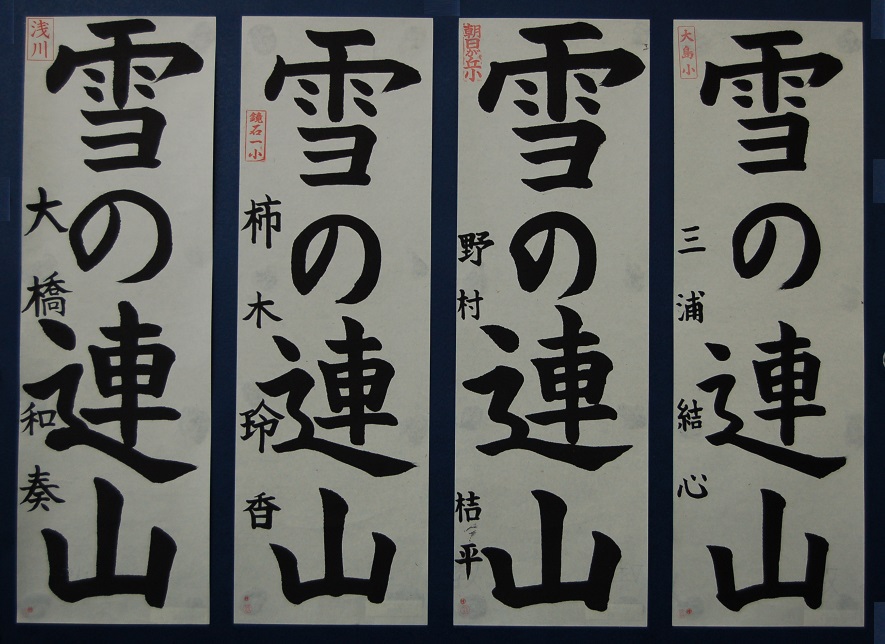 浅川
雪の連山
大橋和奏
鏡石一小
雪の連山
柿木玲香
朝日が丘小
雪の連山
野村桔平
大島小
雪の連山
三浦結心